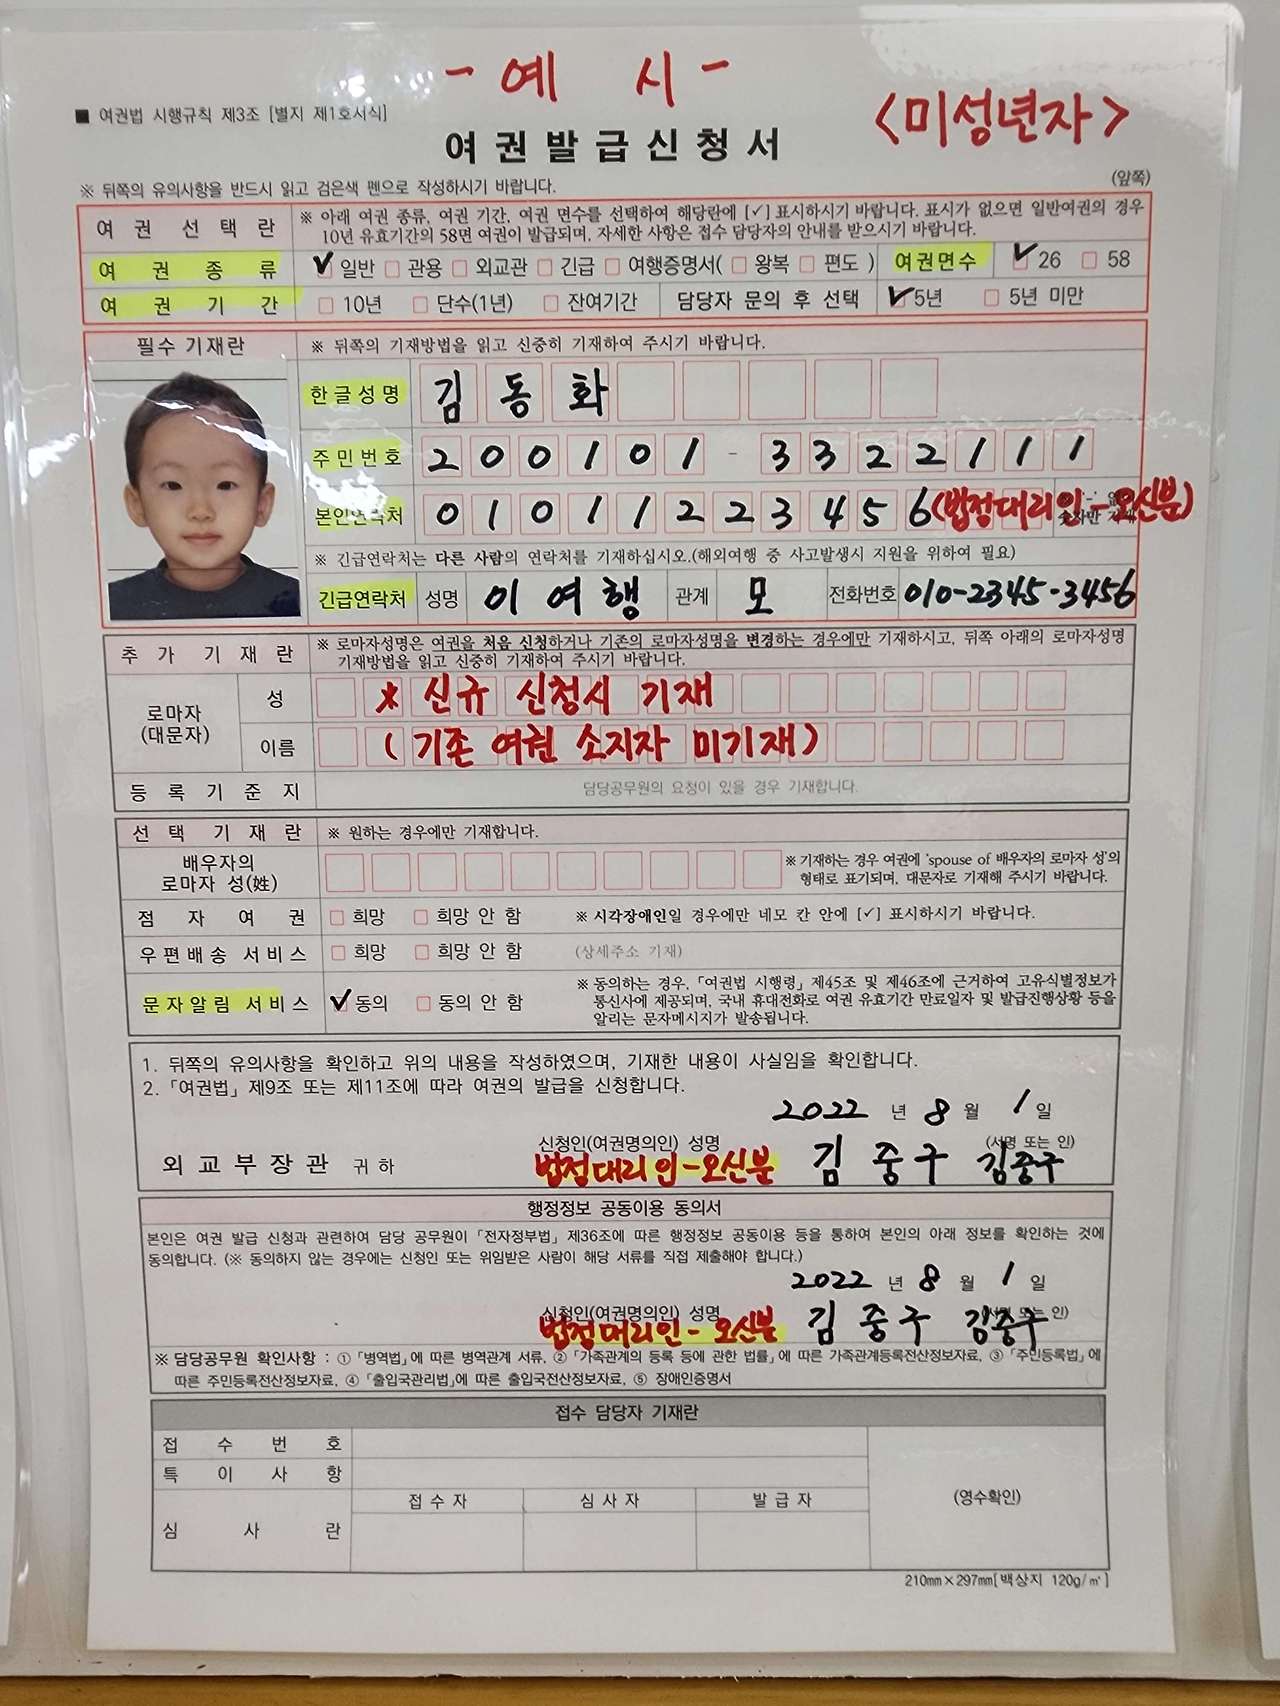 - 예 시 -
■ 여권법 시행규칙 제3조 [별지 제1호서식]
<미성년자>
여권발급신청서
※ 뒤쪽의 유의사항을 반드시 읽고 검은색 펜으로 작성하시기 바랍니다.
(앞쪽)
여 권 선 택 란
※ 아래 여권 종류, 여권 기간, 여권 면수를 선택하여 해당란에 [✓] 표시하시기 바랍니다. 표시가 없으면 일반여권의 경우
10년 유효기간의 58면 여권이 발급되며, 자세한 사항은 접수 담당자의 안내를 받으시기 바랍니다.
여 권 종 류 ☑ 일반 □ 관용 □ 외교관 □ 긴급 □ 여행증명서( □ 왕복 □ 편도 ) 여권면수 ☑ 26 □ 58
여 권 기 간 □ 10년 □ 단수(1년) □ 잔여기간 담당자 문의 후 선택 ☑ 5년 □ 5년 미만
필수 기재란 ※ 뒤쪽의 기재방법을 읽고 신중히 기재하여 주시기 바랍니다.
한글성명 김 동 화
주민번호 200101 - 3322111
본인연락처 01011223456 (법정대리인-오신분)
※ 긴급연락처는 다른 사람의 연락처를 기재하십시오.(해외여행 중 사고발생시 지원을 위하여 필요)
긴급연락처 성명 이 여 행 관계 모 전화번호 010-2345-3456
추 가 기 재 란
※ 로마자성명은 여권을 처음 신청하거나 기존의 로마자성명을 변경하는 경우에만 기재하시고, 뒤쪽 아래의 로마자성명
기재방법을 읽고 신중히 기재하여 주시기 바랍니다.
로마자
(대문자)
성 * 신규 신청시 기재
이름 (기존 여권 소지자 미기재)
등 록 기 준 지 담당공무원의 요청이 있을 경우 기재합니다.
선 택 기 재 란 ※ 원하는 경우에만 기재합니다.
배우자의
로마자 성(姓)
※ 기재하는 경우 여권에 'spouse of 배우자의 로마자 성'의
형태로 표기되며, 대문자로 기재해 주시기 바랍니다.
점 자 여 권 □ 희망 □ 희망 안 함 ※ 시각장애인일 경우에만 네모 칸 안에 [✓] 표시하시기 바랍니다.
우편배송 서비스 □ 희망 □ 희망 안 함 (상세주소 기재)
문자알림 서비스 ☑ 동의 □ 동의 안 함
※ 동의하는 경우, 「여권법 시행령」 제45조 및 제46조에 근거하여 고유식별정보가
통신사에 제공되며, 국내 휴대전화로 여권 유효기간 만료일자 및 발급진행상황 등을
알리는 문자메시지가 발송됩니다.
1. 뒤쪽의 유의사항을 확인하고 위의 내용을 작성하였으며, 기재한 내용이 사실임을 확인합니다.
2. 「여권법」 제9조 또는 제11조에 따라 여권의 발급을 신청합니다.
2022 년 8 월 1 일
신청인(여권명의인) 성명 (서명 또는 인)
외교부장관 귀하 법정대리인-오신분 김 중 구 김중구
행정정보 공동이용 동의서
본인은 여권 발급 신청과 관련하여 담당 공무원이 「전자정부법」 제36조에 따른 행정정보 공동이용 등을 통하여 본인의 아래 정보를 확인하는 것에
동의합니다. (※ 동의하지 않는 경우에는 신청인 또는 위임받은 사람이 해당 서류를 직접 제출해야 합니다.)
2022 년 8 월 1 일
신청인(여권명의인) 성명 (서명 또는 인)
법정대리인-오신분 김 중 구 김중구
※ 담당공무원 확인사항 : ① 「병역법」에 따른 병역관계 서류, ② 「가족관계의 등록 등에 관한 법률」에 따른 가족관계등록전산정보자료, ③ 「주민등록법」에
따른 주민등록전산정보자료, ④ 「출입국관리법」에 따른 출입국전산정보자료, ⑤ 장애인증명서
접수 담당자 기재란
접 수 번 호
특 이 사 항
(영수확인)
접 수 자 심 사 자 발 급 자
심 사 란
210㎜×297㎜[백상지 120g/㎡]